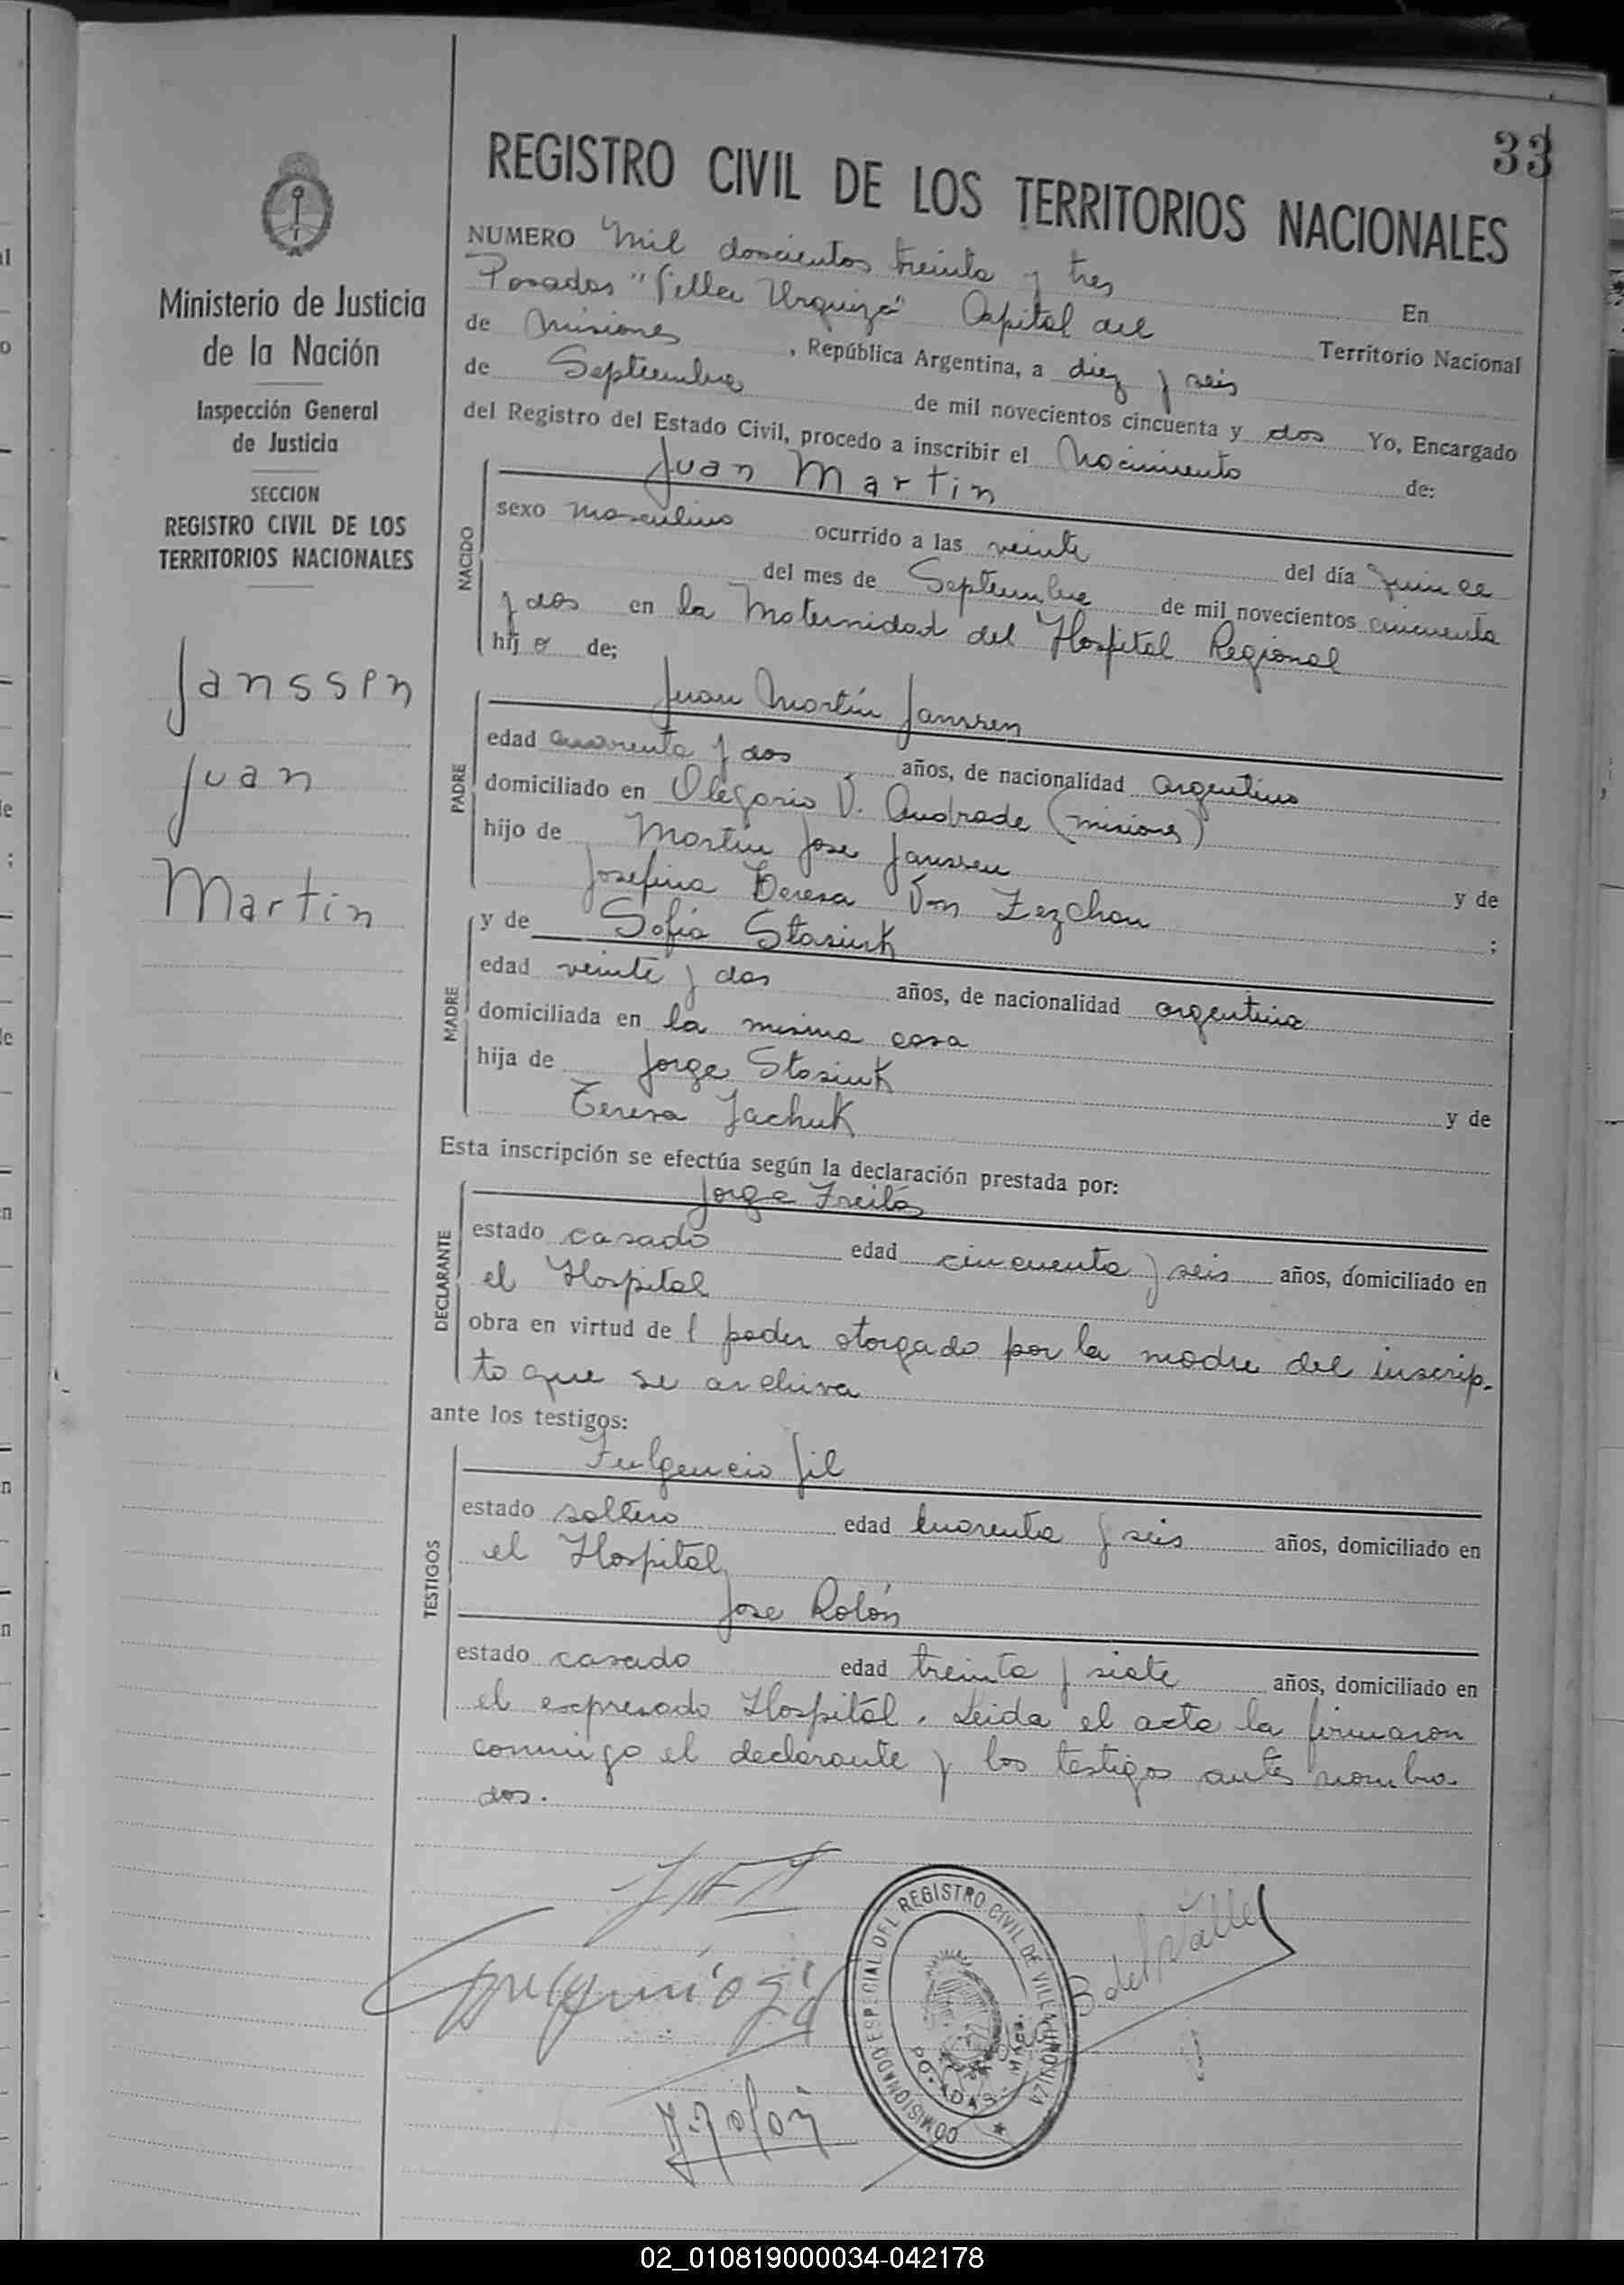 33
REGISTRO CIVIL DE LOS TERRITORIOS NACIONALES
Ministerio de Justicia
de la Nación
Inspección General
de Justicia
SECCION
REGISTRO CIVIL DE LOS
TERRITORIOS NACIONALES
Janssen
Juan
Martin
NUMERO Mil doscientos treinta y tres En
Posadas "Villa Urquiza" Capital del Territorio Nacional
de Misiones, República Argentina, a diez y seis
de Septiembre de mil novecientos cincuenta y dos Yo, Encargado
del Registro del Estado Civil, procedo a inscribir el Nacimiento de:
NACIDO
Juan Martin
sexo masculino ocurrido a las veinte del día quince
del mes de Septiembre de mil novecientos cincuenta
y dos en la Maternidad del Hospital Regional
hijo de;
PADRE
Juan Martín Janssen
edad cuarenta y dos años, de nacionalidad argentino
domiciliado en Olegario V. Andrade (misiones)
hijo de Martin Jose Janssen y de
Josefina Teresa Von Zezchau ;
MADRE
y de Sofia Stasiuk
edad veinte y dos años, de nacionalidad argentina
domiciliada en la misma casa
hija de Jorge Stasiuk y de
Teresa Jachuk
Esta inscripción se efectúa según la declaración prestada por:
DECLARANTE
Jorge Freitas
estado casado edad cincuenta y seis años, domiciliado en
el Hospital
obra en virtud del poder otorgado por la madre del inscrip-
to que se archiva
ante los testigos:
TESTIGOS
Fulgencio Gil
estado soltero edad cuarenta y seis años, domiciliado en
el Hospital
Jose Rolón
estado casado edad treinta y siete años, domiciliado en
el expresado Hospital. Leida el acta la firmaron
conmigo el declarante y los testigos antes nombra-
dos.
Fulgencio Gil
B del Valle
J. Rolón
COMISIONADO ESPECIAL DEL REGISTRO CIVIL DE VILLA URQUIZA
POSADAS
02_010819000034-042178